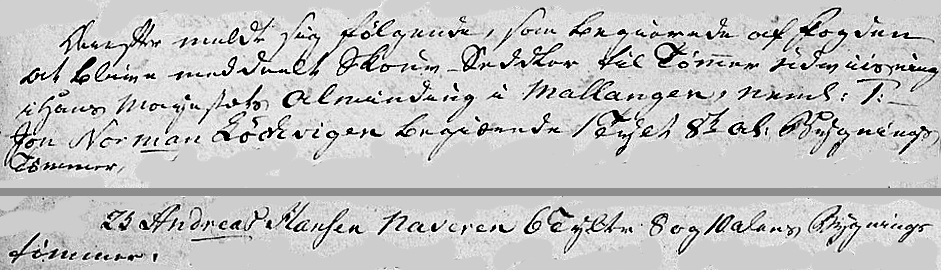 Derefter meldte sig følgende, som begiærede af fogden
at blive meddeelt Skouv-Sedler til Tømmer udviisning
i Hans Mayestæts Alminding i Mallangen, neml: 1:
Jon Norman Löckvigen begiærede 1 Tylt 8te al: Bygnings
Tømmer,
25 Andreas Hansen Naveren 6 Tylter 8 og 10 alens Bygnings
tömmer.